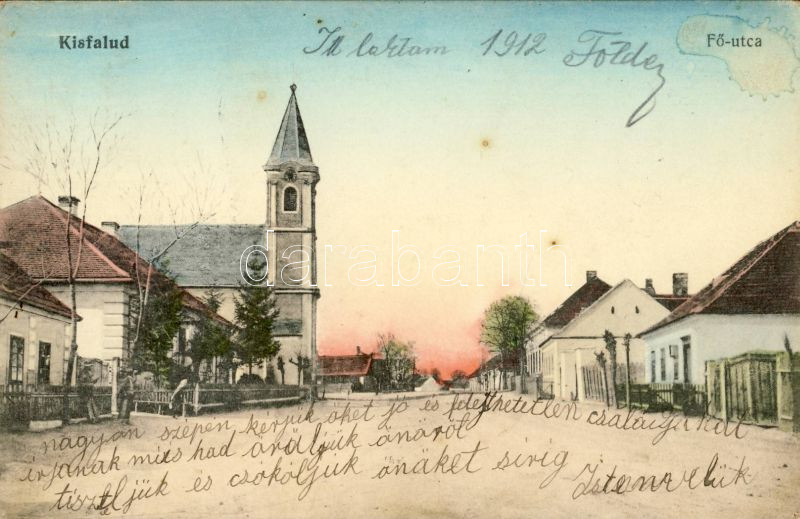 Kisfalud
Itt laktam 1912 Földez
Fő-utca
darabanth
nagyon szépen kérjük őket jó és felejthetetlen családjukat
írjanak mids had örüljük önöröl
tiszteljük és csókoljuk önöket sirig
Istenvelük